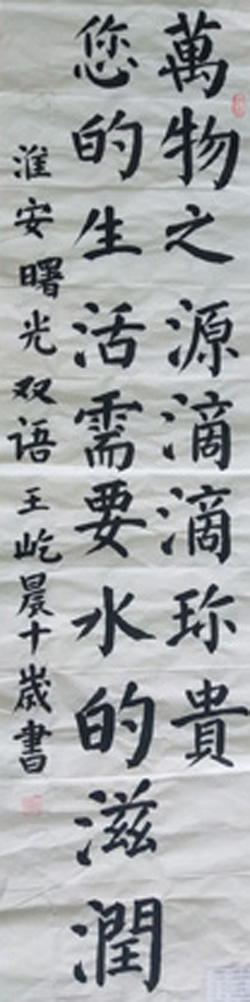 萬物之源滴滴珎貴
您的生活需要水的滋潤
淮安曙光双语王屹晨十歲書